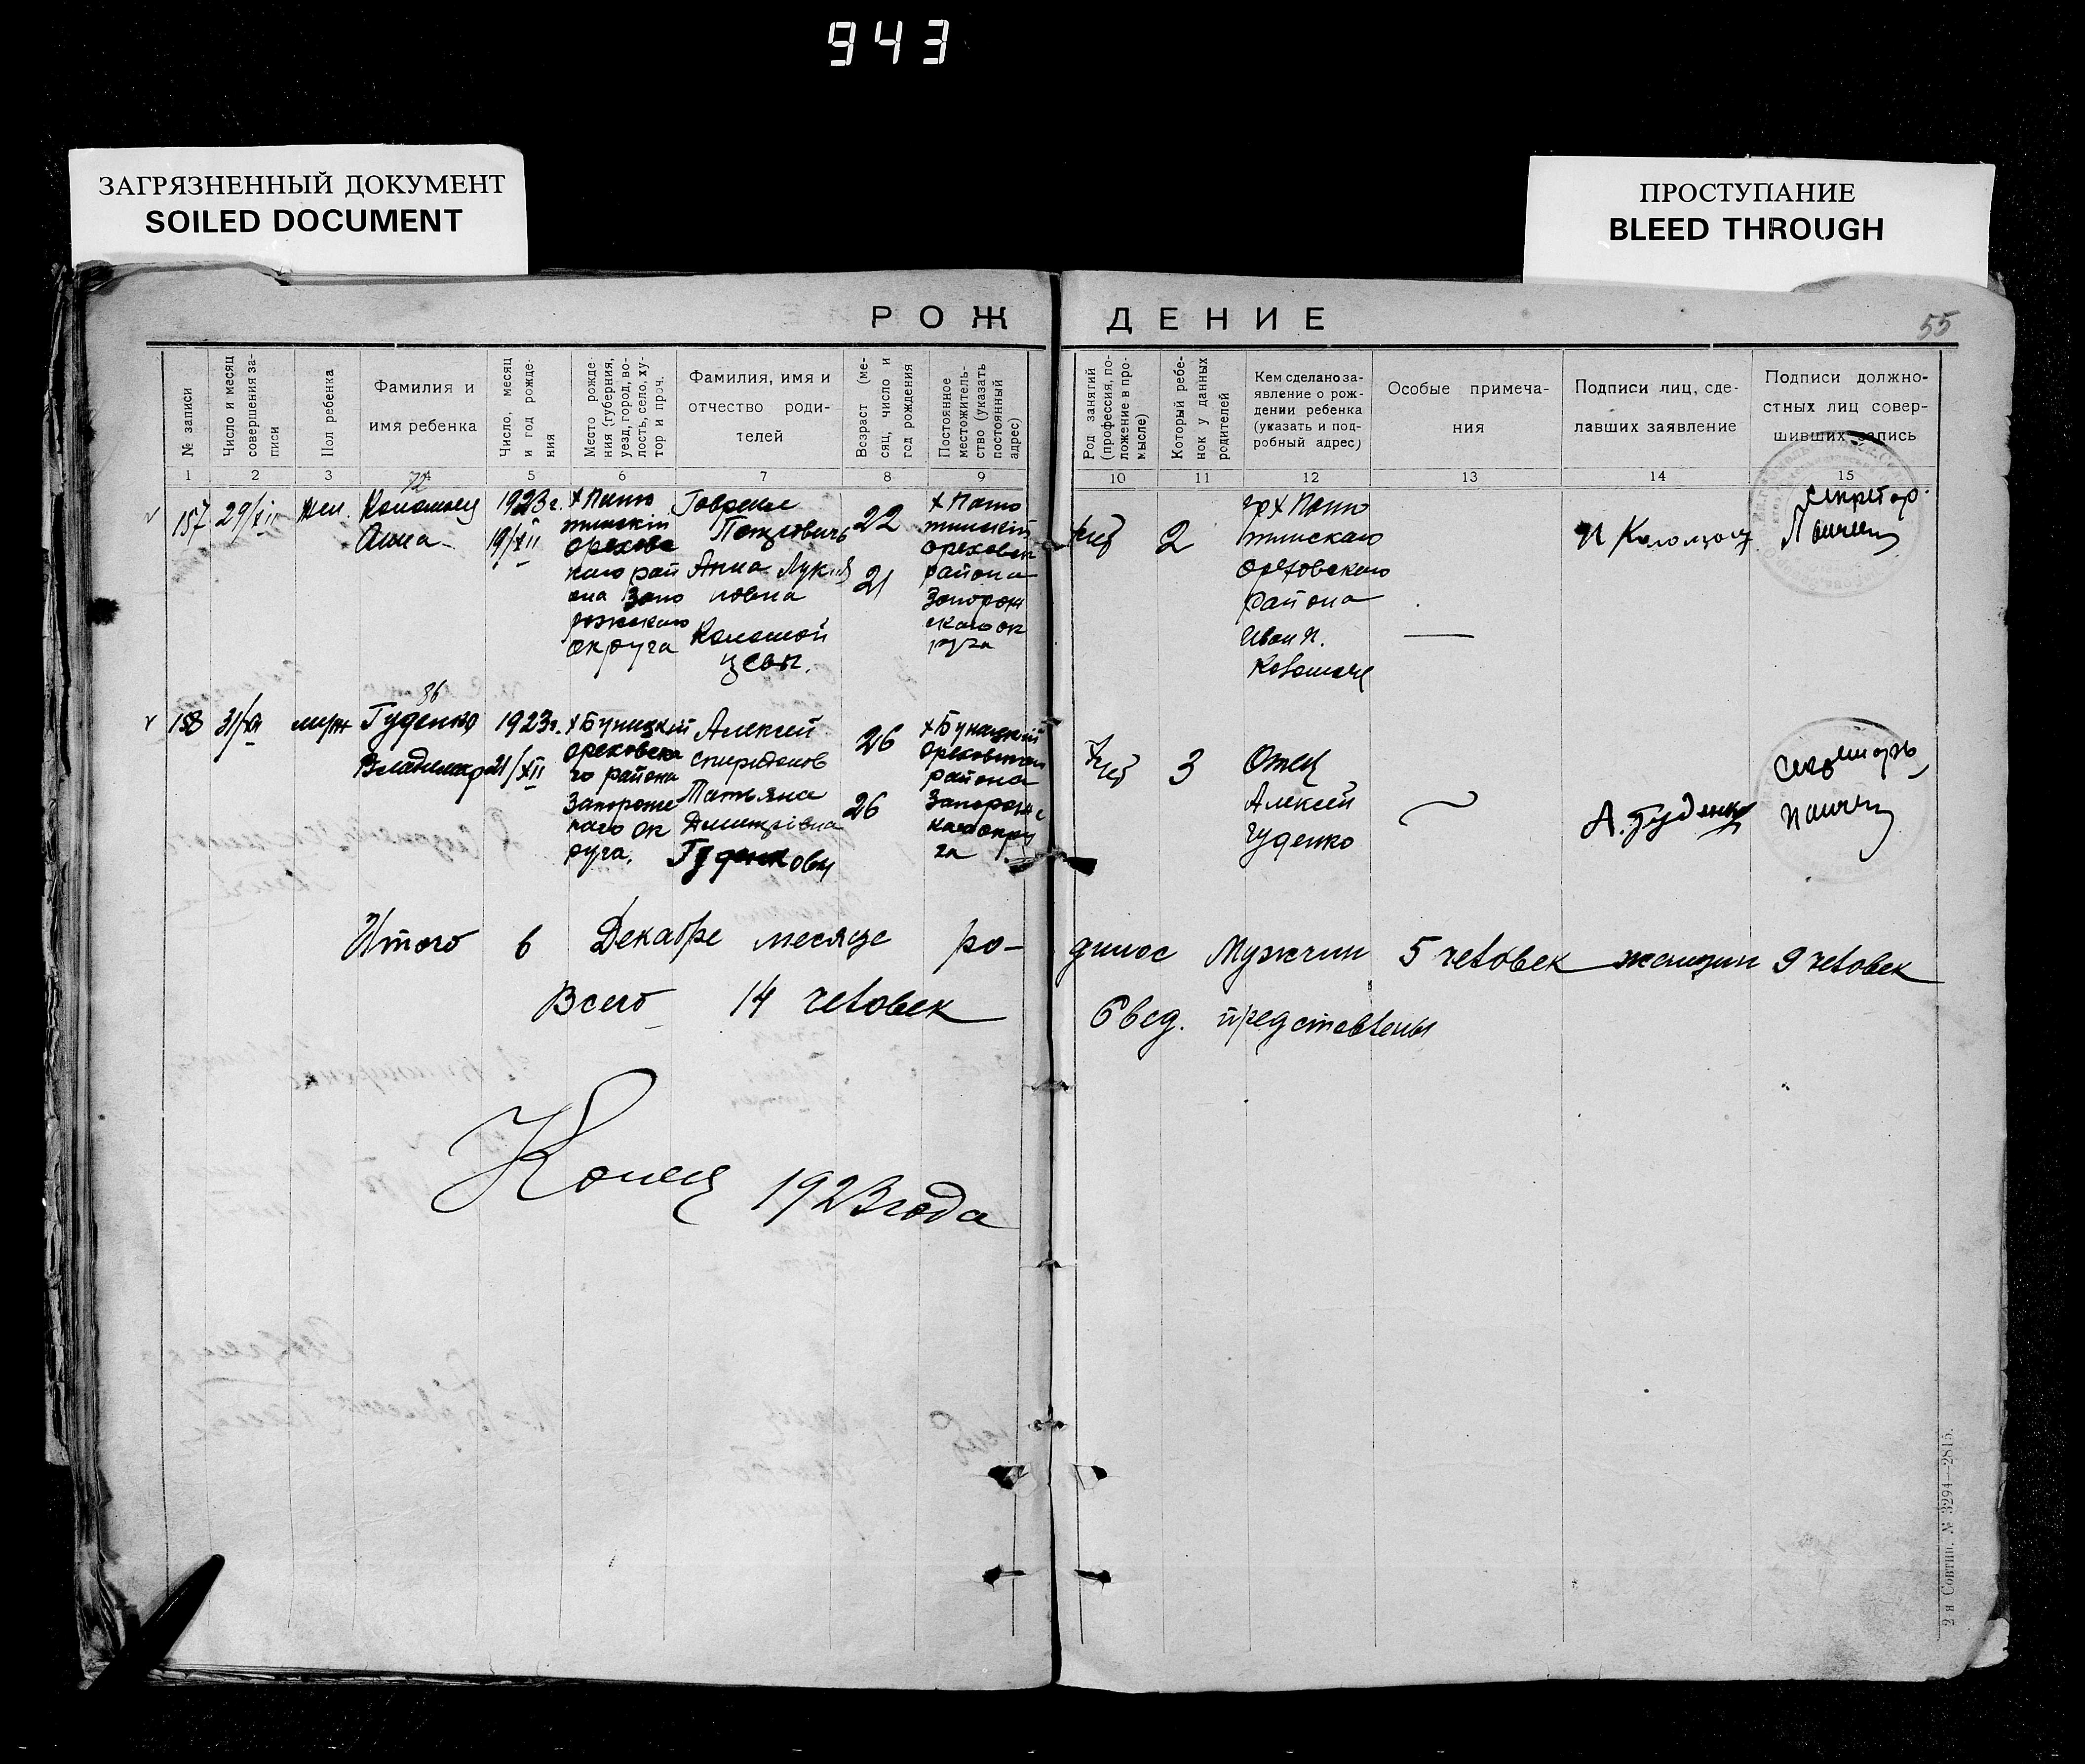 943
ЗАГРЯЗНЕННЫЙ ДОКУМЕНТ
SOILED DOCUMENT
ПРОСТУПАНИЕ
BLEED THROUGH
РОЖДЕНИЕ
55
№ записи
Число и месяц
совершения за-
писи
Пол ребенка
Фамилия и
имя ребенка
Число, месяц
и год рожде-
ния
Место рожде-
ния (губерния,
уезд, город, во-
лость, село, ху-
тор и проч.
Фамилия, имя и
отчество роди-
телей
Возраст (ме-
сяц, число и
год рождения
Постоянное
местожитель-
ство (указать
постоянный
адрес)
Род занятий
(профессия, по-
ложение в про-
мысле)
Который ребе-
нок у данных
родителей
Кем сделано за-
явление о рож-
дении ребенка
(указать и под-
робный адрес)
Особые примеча-
ния
Подписи лиц, сде-
лавших заявление
Подписи должно-
стных лиц совер-
шивших запись
1 2 3 4 5 6 7 8 9 10 11 12 13 14 15
157
29/XII
жен.
Коломоец
Анна
1923 г.
19/XII
Орехов
ского рай
она Запо
рожского
округа
Петрович
Анна Лукия
новна
Коломой
цевы.
22
21
района
Запорож
ского ок
руга
2
Ореховского
района
Иван П.
Коломоец
—
Секретарь
158
31/XII
муж
86
Гуденко
Владимир
1923 г.
21/XII
х Буницкий
Ореховска
го района
Запорожс
каго ок
руга.
Алексей
Спиридонов
Татьяна
Димитріевна
Гуденковы
26
26
х Буницкий
Ореховскаго
района
Запорожс
каго окру
га
3
Отец
Алексей
Гуденко
А. Гуденко
Секретарь
Итого в Декабре месяце ро-
дилос Мужчин 5 человек женщин 9 человек
Всего 14 человек
Свед. представлены
Конец 1923 года
2 я Совтип. № 3294—2815.